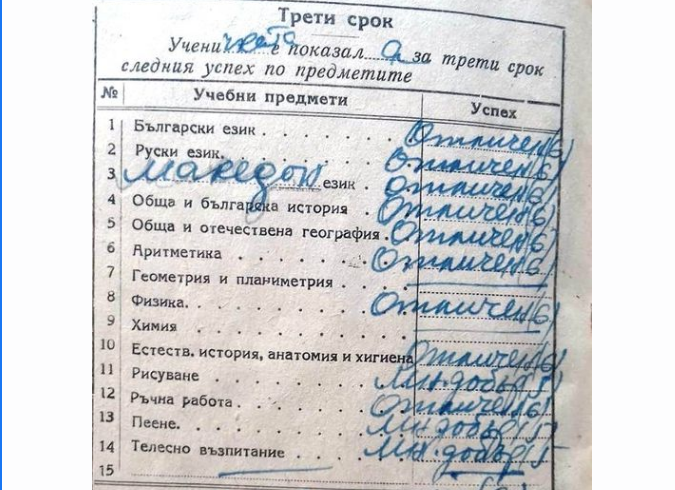 Трети срок
Ученичката е показала за трети срок
следния успех по предметите
№ Учебни предмети Успех
1 Български език . . . . . . . Отличен (6)
2 Руски език. . . . . . . . . Отличен (6)
3 Македон език . Отличен (6)
4 Обща и българска история . Отличен (6)
5 Обща и отечествена география . Отличен (6)
6 Аритметика . . . . . . . . Отличен (6)
7 Геометрия и планиметрия . . —
8 Физика. . . . . . . . . . Отличен (6)
9 Химия . . . . . . . . . . —
10 Естеств. история, анатомия и хигиена Отличен (6)
11 Рисуване . . . . . . . . Мн. добър (5)
12 Ръчна работа . . . . . . . Отличен (6)
13 Пеене. . . . . . . . . . Мн. добър (5)
14 Телесно възпитание . . . . . Мн. добър (5
15